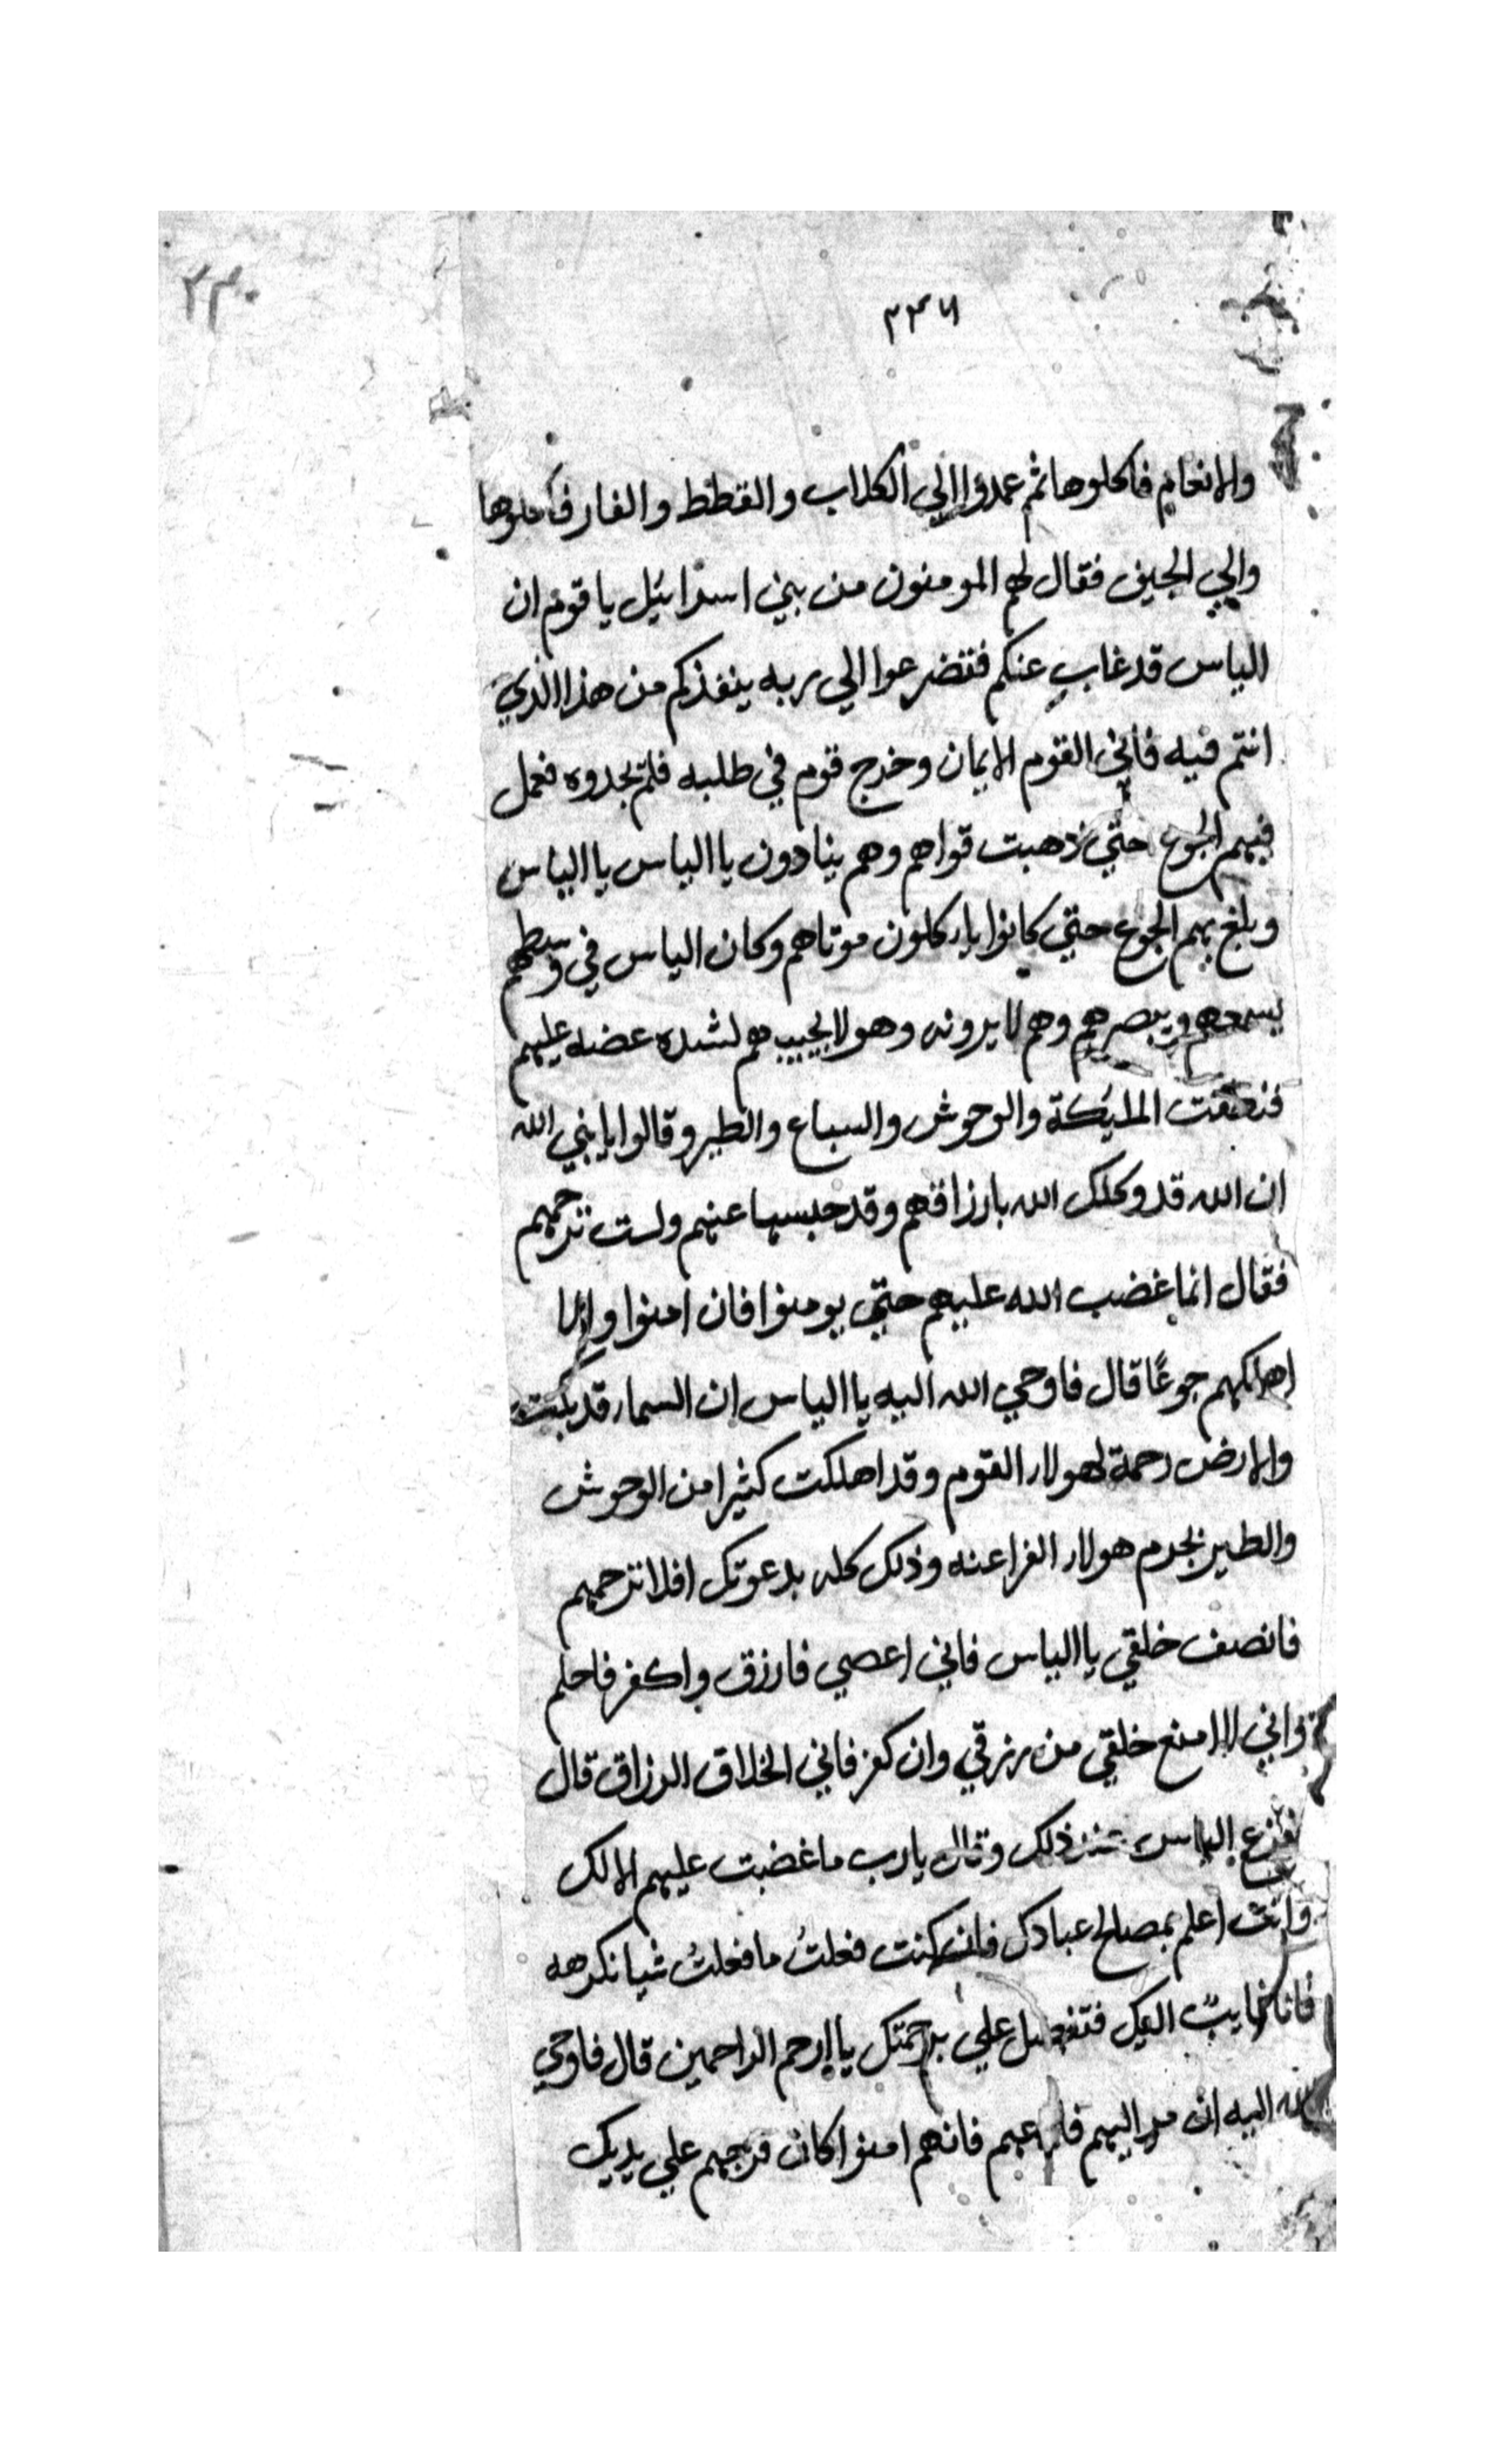 ٢٣٠
٢٣٦
والانعام فاكلوها ثم عمدوا الي الكلاب والقطط والفار فاكلوها
والي الجيف فقال لهم المومنون من بني اسرائيل يا قوم ان
الياس قد غاب عنكم فتضرعوا الي ربه ينقذكم من هذا الذي
انتم فيه فابي القوم الايمان وخرج قوم في طلبه فلم يجدوه فعمل
فيهم الجوع حتي ذهبت قواهم وهم ينادون يا الياس يا الياس
وبلغ بهم الجوع حتي كانوا ياركلون موتاهم وكان الياس في وسطهم
يسمعهم ويبصرهم وهم لا يرونه وهو لا يجيبهم لشده غضبه عليهم
فنطقت المليكة والوحوش والسباع والطير وقالوا يا نبي الله
ان الله قد وكلك الله بارزاقهم وقد حبسها عنهم ولست ترحمهم
فقال انما غضب الله عليهم حتي يومنوا فان امنوا والا
اهلكهم جوعًا قال فاوحي الله اليه يا الياس ان السمار قد بكت
والارض رحمة لهولار القوم وقد اهلكت كثيرا من الوحوش
والطير بجرم هولار الفراعنه وذلك كله بدعوتك افلا ترحمهم
فانصف خلقي يا الياس فاني اعصي فارزق واكفر فاحلم
واني لا امنع خلقي من رزقي وان كفر فاني الخلاق الرزاق قال
ففزع الياس عند ذلك وقال يا رب ما غضبت عليهم الا لك
وانت اعلم بمصالح عبادك فان كنت فعلتُ ما فعلتُ شيا تكرهه
فانا تايبٌ اليك فتفضل علي برحمتك يا ارحم الراحمين قال فاوحي
الله اليه ان مر اليهم فادعهم فانهم امنوا كان فرجهم علي يديك